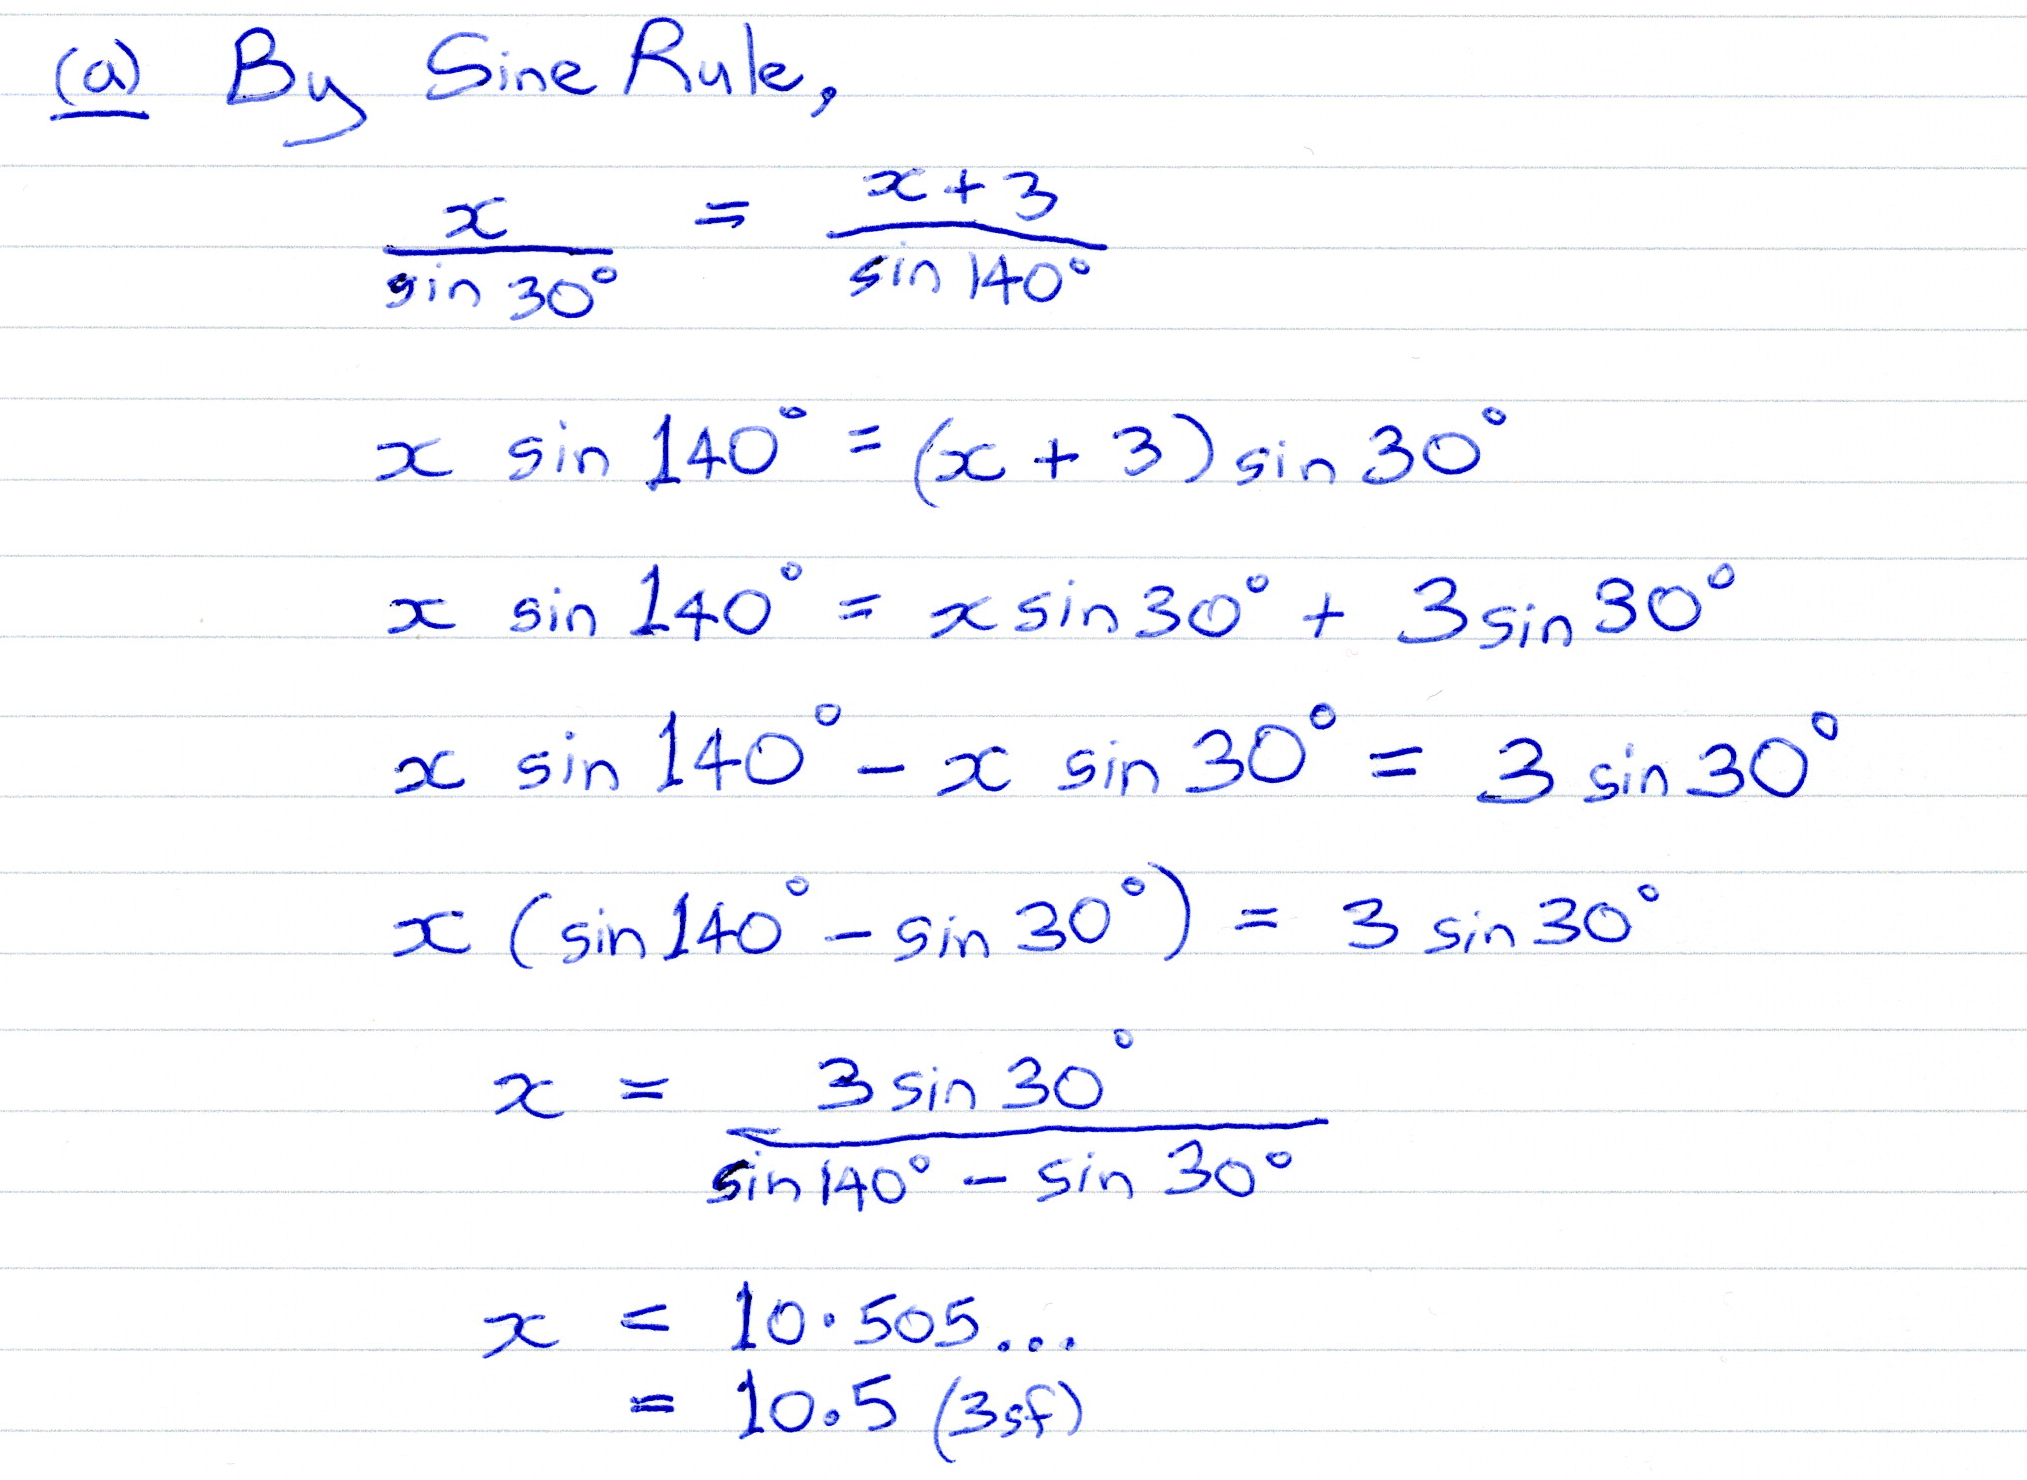 (a) By Sine Rule,
x / sin 30° = x + 3 / sin 140°
x sin 140° = (x + 3) sin 30°
x sin 140° = x sin 30° + 3 sin 30°
x sin 140° - x sin 30° = 3 sin 30°
x (sin 140° - sin 30°) = 3 sin 30°
x = 3 sin 30° / sin 140° - sin 30°
x = 10.505...
= 10.5 (3sf)